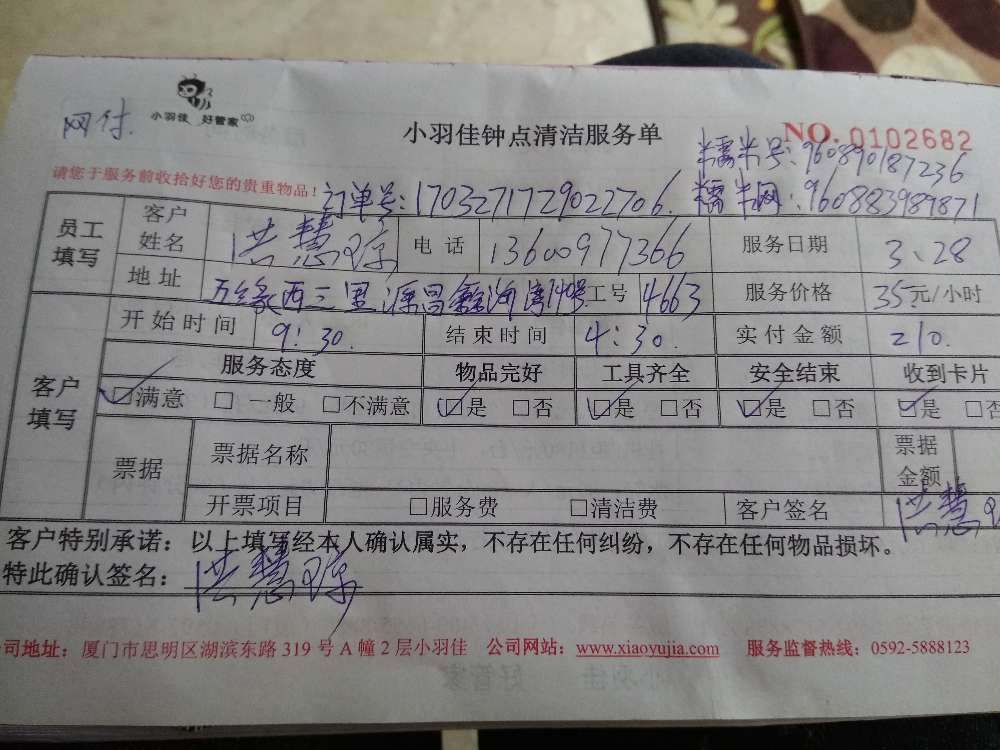 小羽佳 好管家
网付.
小羽佳钟点清洁服务单
NO. 0102682
糯米号:960890187236
请您于服务前收拾好您的贵重物品!
订单号:1703271729022706.
糯米网:960883989871
员工填写
客户姓名 洪慧琼 电话 13600977366 服务日期 3.28
地址 西三里源昌鑫海湾140号 工号 4663 服务价格 35元/小时
开始时间 9:30. 结束时间 4:30. 实付金额 210.
客户填写
服务态度 物品完好 工具齐全 安全结束 收到卡片
☑满意 □一般 □不满意 ☑是 □否 ☑是 □否 ☑是 □否 ☑是 □否
票据 票据名称 票据金额
开票项目 □服务费 □清洁费 客户签名 洪慧
客户特别承诺:以上填写经本人确认属实,不存在任何纠纷,不存在任何物品损坏。
特此确认签名:洪慧琼
司地址:厦门市思明区湖滨东路 319 号 A 幢 2 层小羽佳 公司网站:www.xiaoyujia.com 服务监督热线:0592-5888123